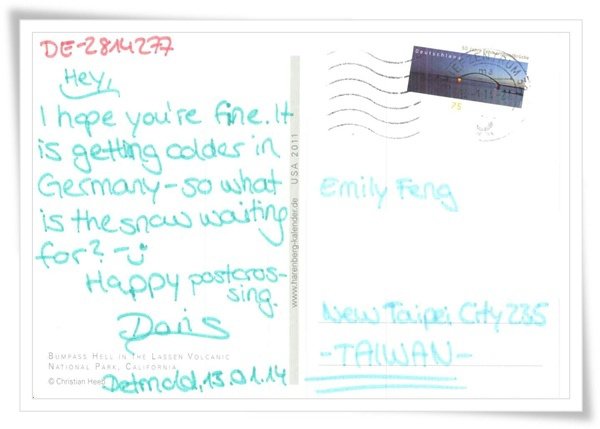 DE-2814277
Hey,
I hope you're fine. It
is getting colder in
Germany - so what
is the snow waiting
for? :-)
Happy postcros-
sing.
Doris
BUMPASS HELL IN THE LASSEN VOLCANIC
NATIONAL PARK, CALIFORNIA
© Christian Heeb
Detmold, 13.01.14
www.harenberg-kalender.de USA 2011
Deutschland
75
Emily Feng
New Taipei City 235
-TAIWAN-